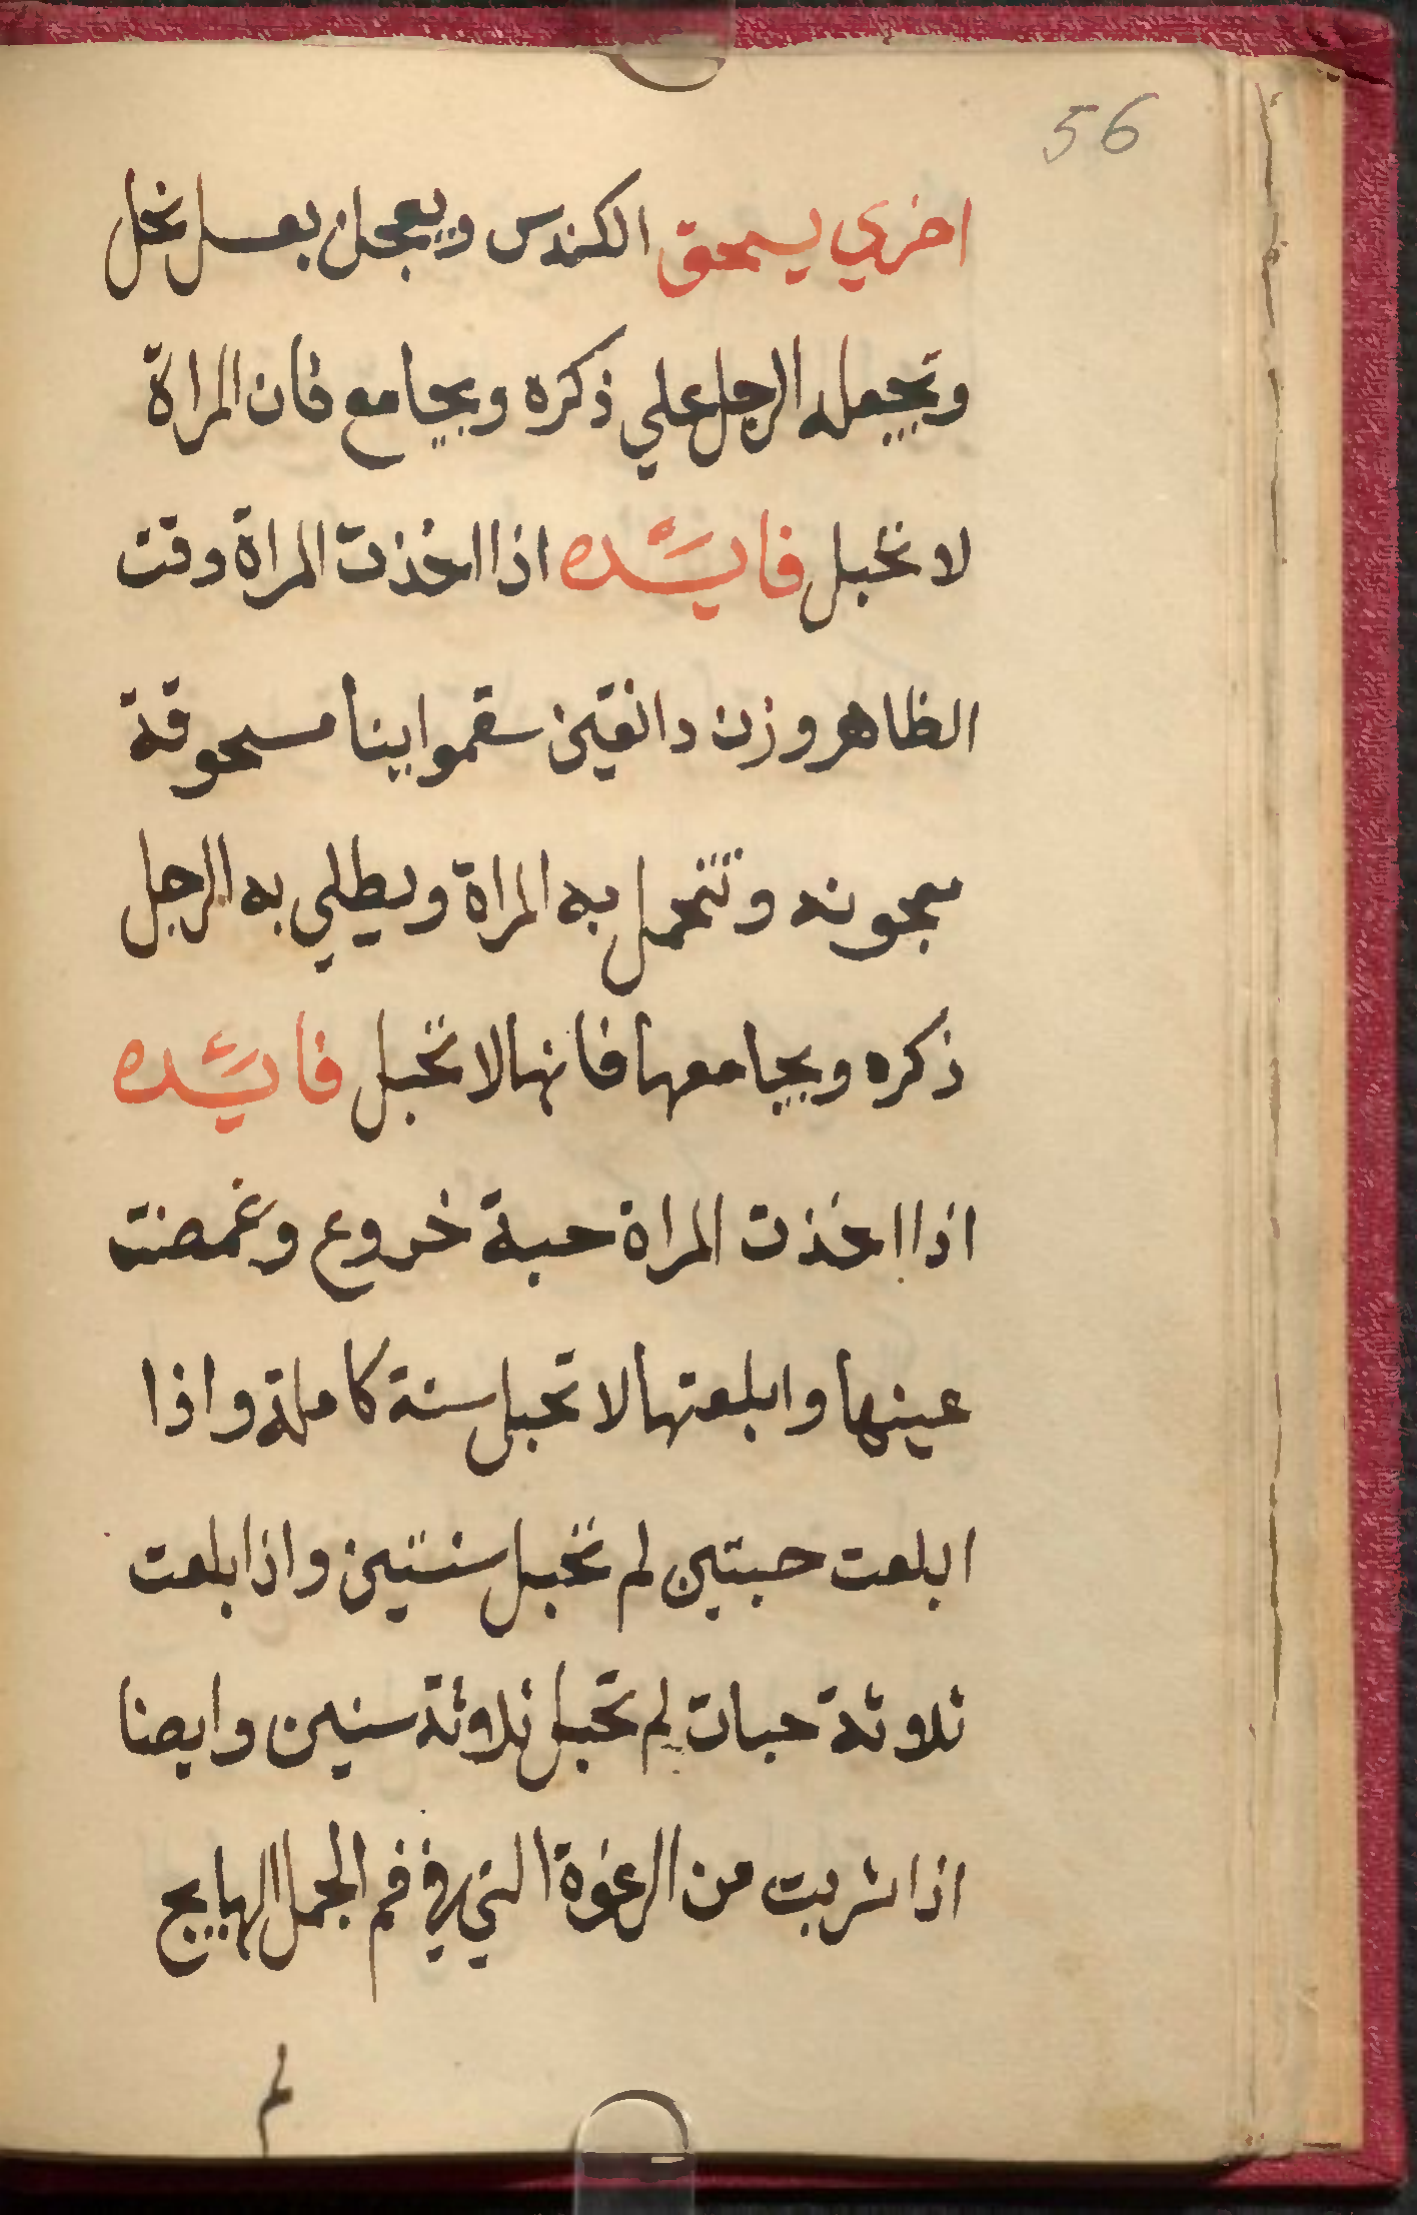 56
اخري يسحق الكندس ويعجن بعسل نحل
وتجعله الرجل علي ذكره ويجامع فان المراة
لا تحبل فايئده اذا اخذت المراة وقت
الظاهر وزن دانقين سقموابينا مسحوقة
معجونه وتتحمل به المراة ويطلي به الرجل
ذكره ويجامعها فانها لا تحبل فايئده
اذا اخذت المراة حبة خروع وغمضت
عينها وابلعتها لا تحبل سنة كاملة واذا
ابلعت حبتين لم تحبل سنتين واذا بلعت
ثلاوثة حبات لم تحبل ثلاوثة سنين وايضا
اذا شربت من الرغوة التي في فم الجمل الهايج
لم